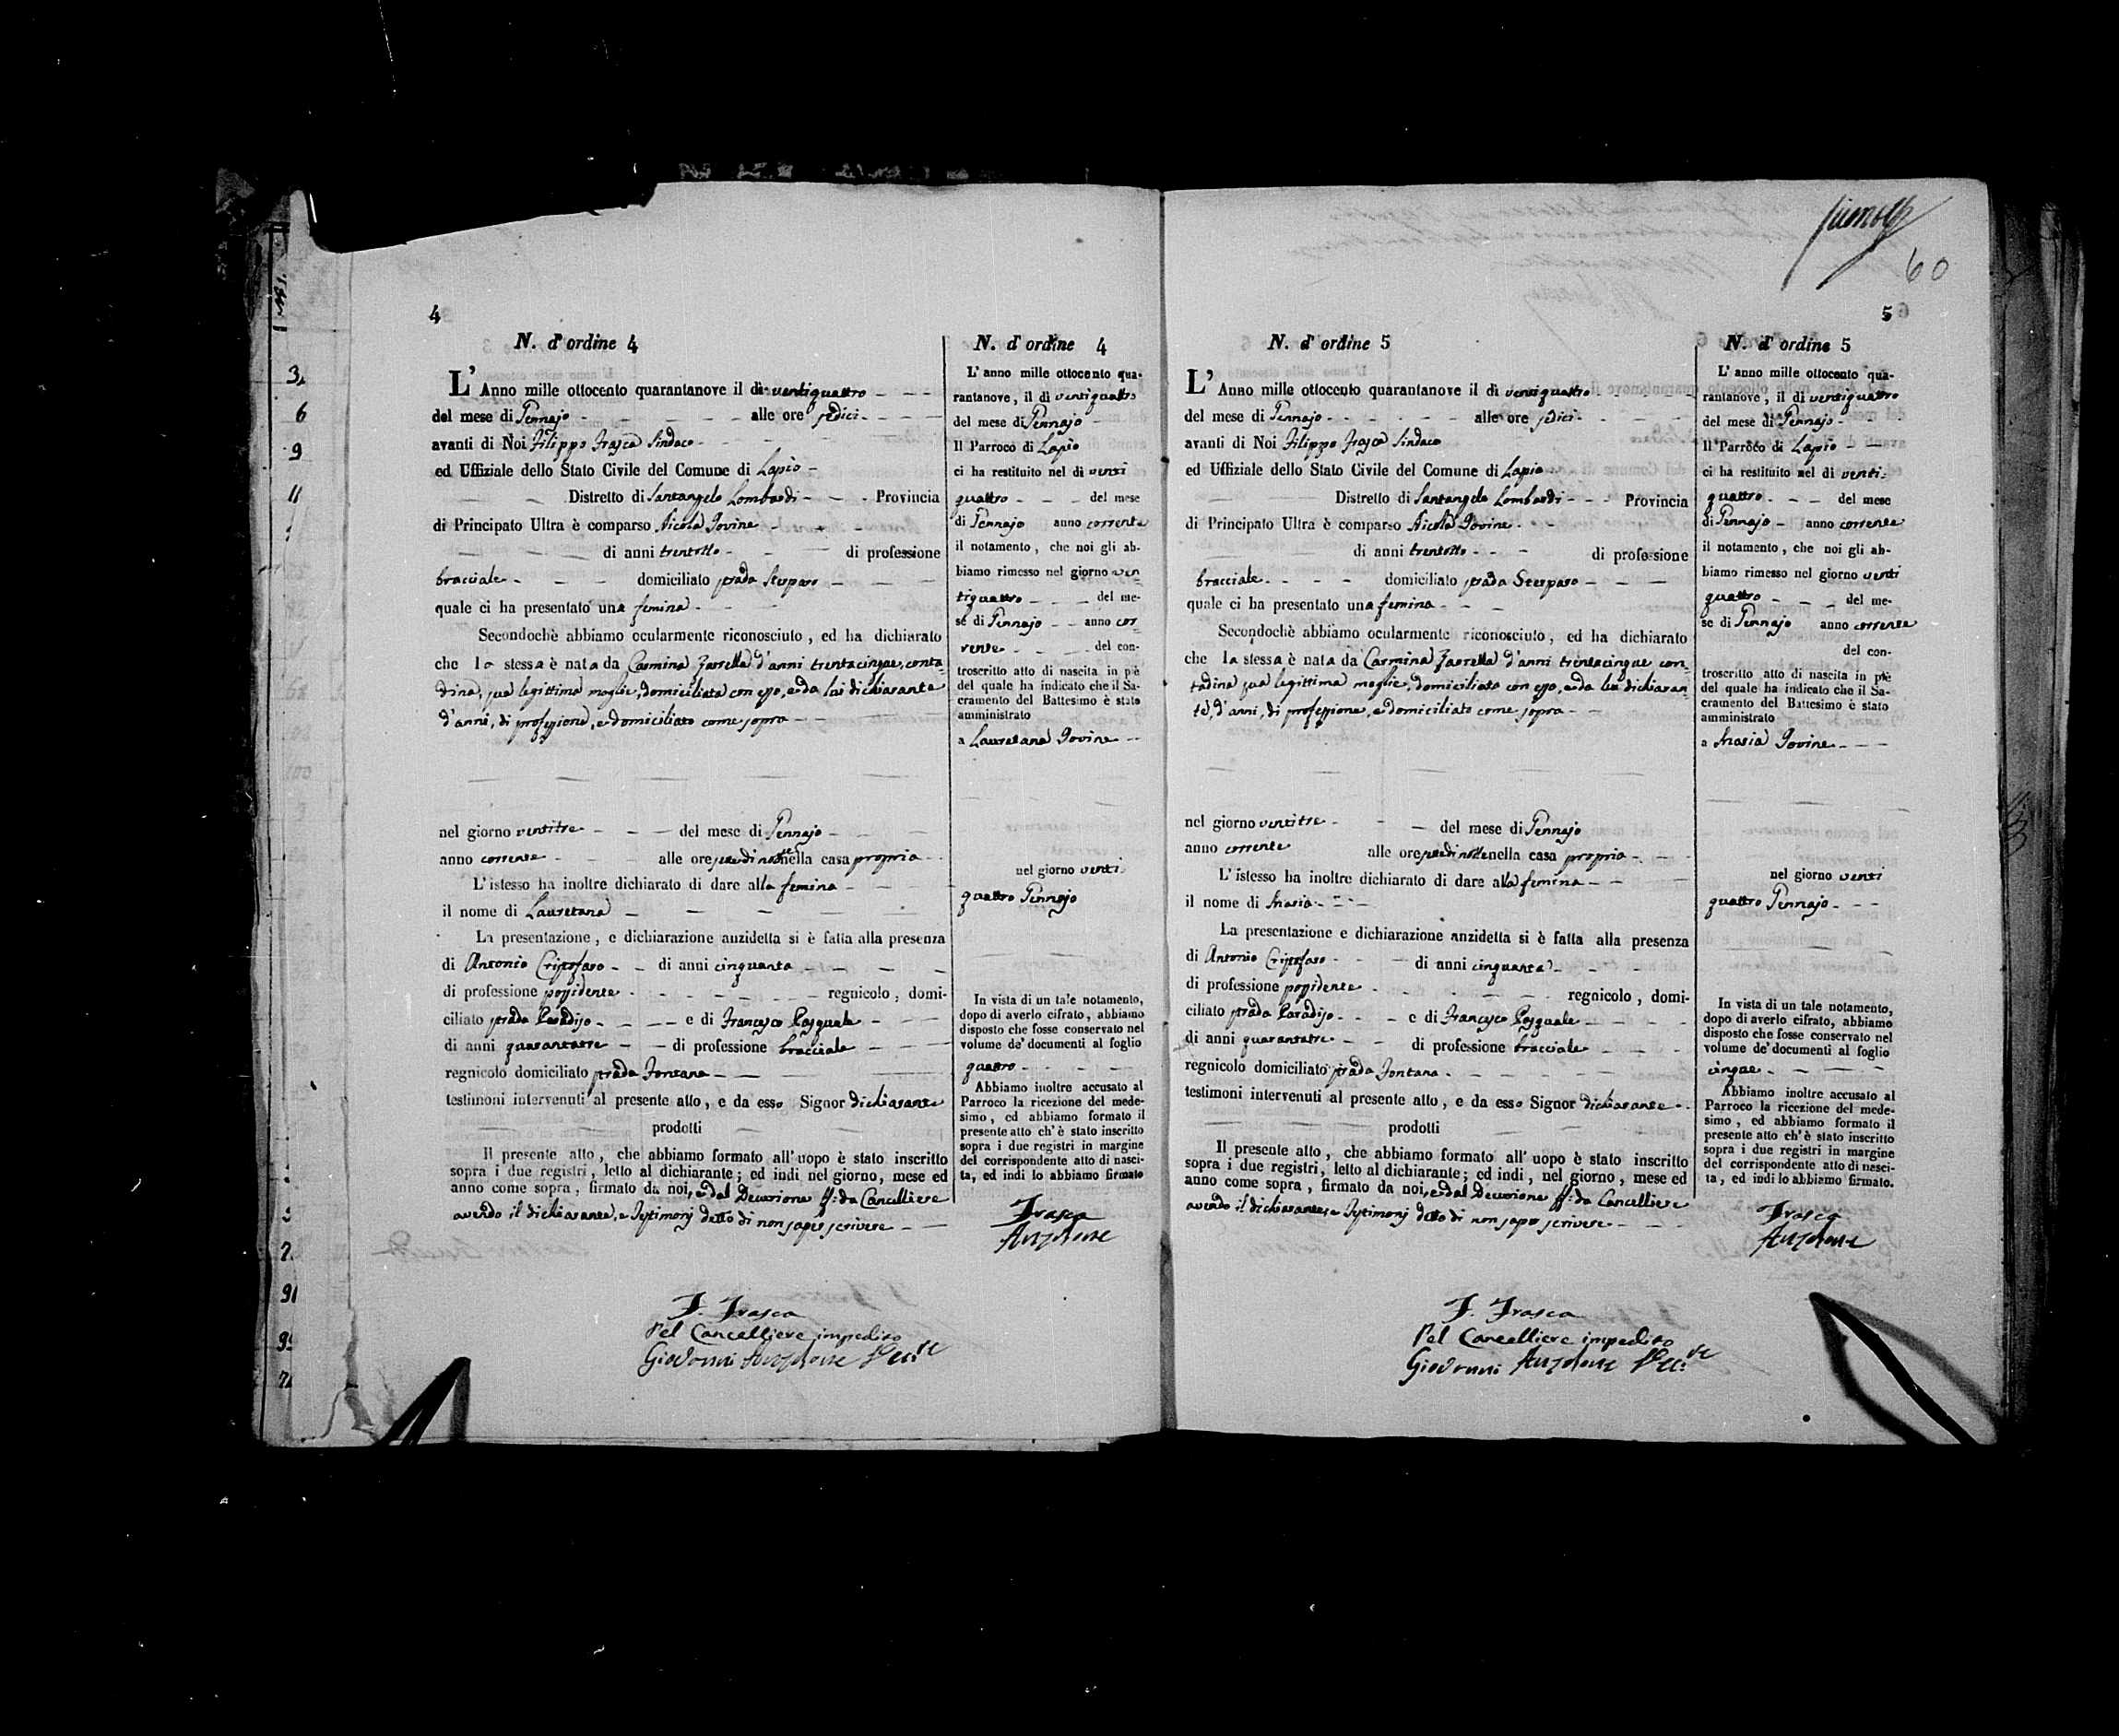 4
N. d'ordine 4
L' Anno mille ottocento quarantanove il dì ventiquattro
del mese di Gennajo alle ore sedici
avanti di Noi Filippo Frasca Sindaco
ed Uffiziale dello Stato Civile del Comune di Lapio
Distretto di Santangelo Lombardi Provincia
di Principato Ultra è comparso Nicola Iovine
di anni trentotto di professione
bracciale domiciliato strada
quale ci ha presentato una femina
Secondochè abbiamo ocularmente riconosciuto, ed ha dichiarato
che la stessa è nata da Carmina Zarrella d'anni trentacinque, conta-
dina, sua legittima moglie, domiciliata con esso, e da lui dichiarante
d'anni, di professione, e domiciliato come sopra
nel giorno ventitre del mese di Gennajo
anno corrente alle ore nella casa propria
L'istesso ha inoltre dichiarato di dare alla femina
il nome di Lauretana
La presentazione, e dichiarazione anzidetta si è fatta alla presenza
di Antonio Cristofaro di anni cinquanta
di professione possidente regnicolo, domi-
ciliato strada Paradiso e di Francesco Pasquale
di anni quarantatre di professione bracciale
regnicolo domiciliato strada Fontana
testimoni intervenuti al presente atto, e da esso Signor dichiarante
prodotti
Il presente atto, che abbiamo formato all'uopo è stato inscritto
sopra i due registri, letto al dichiarante; ed indi nel giorno, mese ed
anno come sopra, firmato da noi, e dal Decurione ff: da Cancelliere
avendo il dichiarante, e Testimonj detto di non saper scrivere
F. Frasca
Pel Cancelliere impedito
Giovanni Anzalone
N. d'ordine 4
L'anno mille ottocento qua-
rantanove, il dì ventiquattro
del mese di Gennajo
Il Parroco di Lapio
ci ha restituito nel dì venti
quattro del mese
di Gennajo anno corrente
il notamento, che noi gli ab-
biamo rimesso nel giorno ven
tiquattro del me-
se di Gennajo anno cor-
rente del con-
troscritto atto di nascita in piè
del quale ha indicato che il Sa-
cramento del Battesimo è stato
amministrato
a Lauretana Iovine
nel giorno venti
quattro Gennajo
In vista di un tale notamento,
dopo di averlo cifrato, abbiamo
disposto che fosse conservato nel
volume de' documenti al foglio
quattro
Abbiamo inoltre accusato al
Parroco la ricezione del mede-
simo, ed abbiamo formato il
presente atto ch'è stato inscritto
sopra i due registri in margine
del corrispondente atto di nasci-
ta, ed indi lo abbiamo firmato
Frasca
Anzalone
60
5
N. d'ordine 5
L' Anno mille ottocento quarantanove il dì ventiquattro
del mese di Gennajo alle ore sedici
avanti di Noi Filippo Frasca Sindaco
ed Uffiziale dello Stato Civile del Comune di Lapio
Distretto di Santangelo Lombardi Provincia
di Principato Ultra è comparso Nicola Iovine
di anni trentotto di professione
bracciale domiciliato strada
quale ci ha presentato una femina
Secondochè abbiamo ocularmente riconosciuto, ed ha dichiarato
che la stessa è nata da Carmina Zarrella d'anni trentacinque con-
tadina sua legittima moglie, domiciliata con esso, e da lui dichiaran-
te, d'anni, di professione, e domiciliato come sopra
nel giorno ventitre del mese di Gennajo
anno corrente alle ore nella casa propria
L'istesso ha inoltre dichiarato di dare alla femina
il nome di
La presentazione e dichiarazione anzidetta si è fatta alla presenza
di Antonio Cristofaro di anni cinquanta
di professione possidente regnicolo, domi-
ciliato strada Paradiso e di Francesco Pasquale
di anni quarantatre di professione bracciale
regnicolo domiciliato strada Fontana
testimoni intervenuti al presente atto, e da esso Signor dichiarante
prodotti
Il presente atto, che abbiamo formato all'uopo è stato inscritto
sopra i due registri, letto al dichiarante; ed indi, nel giorno, mese ed
anno come sopra, firmato da noi, e dal Decurione ff: da Cancelliere
avendo il dichiarante, e Testimonj detto di non saper scrivere
F. Frasca
Pel Cancelliere impedito
Giovanni Anzalone
N. d'ordine 5
L'anno mille ottocento qua-
rantanove, il dì ventiquattro
del mese di Gennajo
Il Parroco di Lapio
ci ha restituito nel dì venti-
quattro del mese
di Gennajo anno corrente
il notamento, che noi gli ab-
biamo rimesso nel giorno venti
quattro del me-
se di Gennajo anno corrente
del con-
troscritto atto di nascita in piè
del quale ha indicato che il Sa-
cramento del Battesimo è stato
amministrato
a Iovine
nel giorno venti
quattro Gennajo
In vista di un tale notamento,
dopo di averlo cifrato, abbiamo
disposto che fosse conservato nel
volume de' documenti al foglio
cinque
Abbiamo inoltre accusato al
Parroco la ricezione del mede-
simo, ed abbiamo formato il
presente atto ch'è stato inscritto
sopra i due registri in margine
del corrispondente atto di nasci-
ta, ed indi lo abbiamo firmato.
Frasca
Anzalone